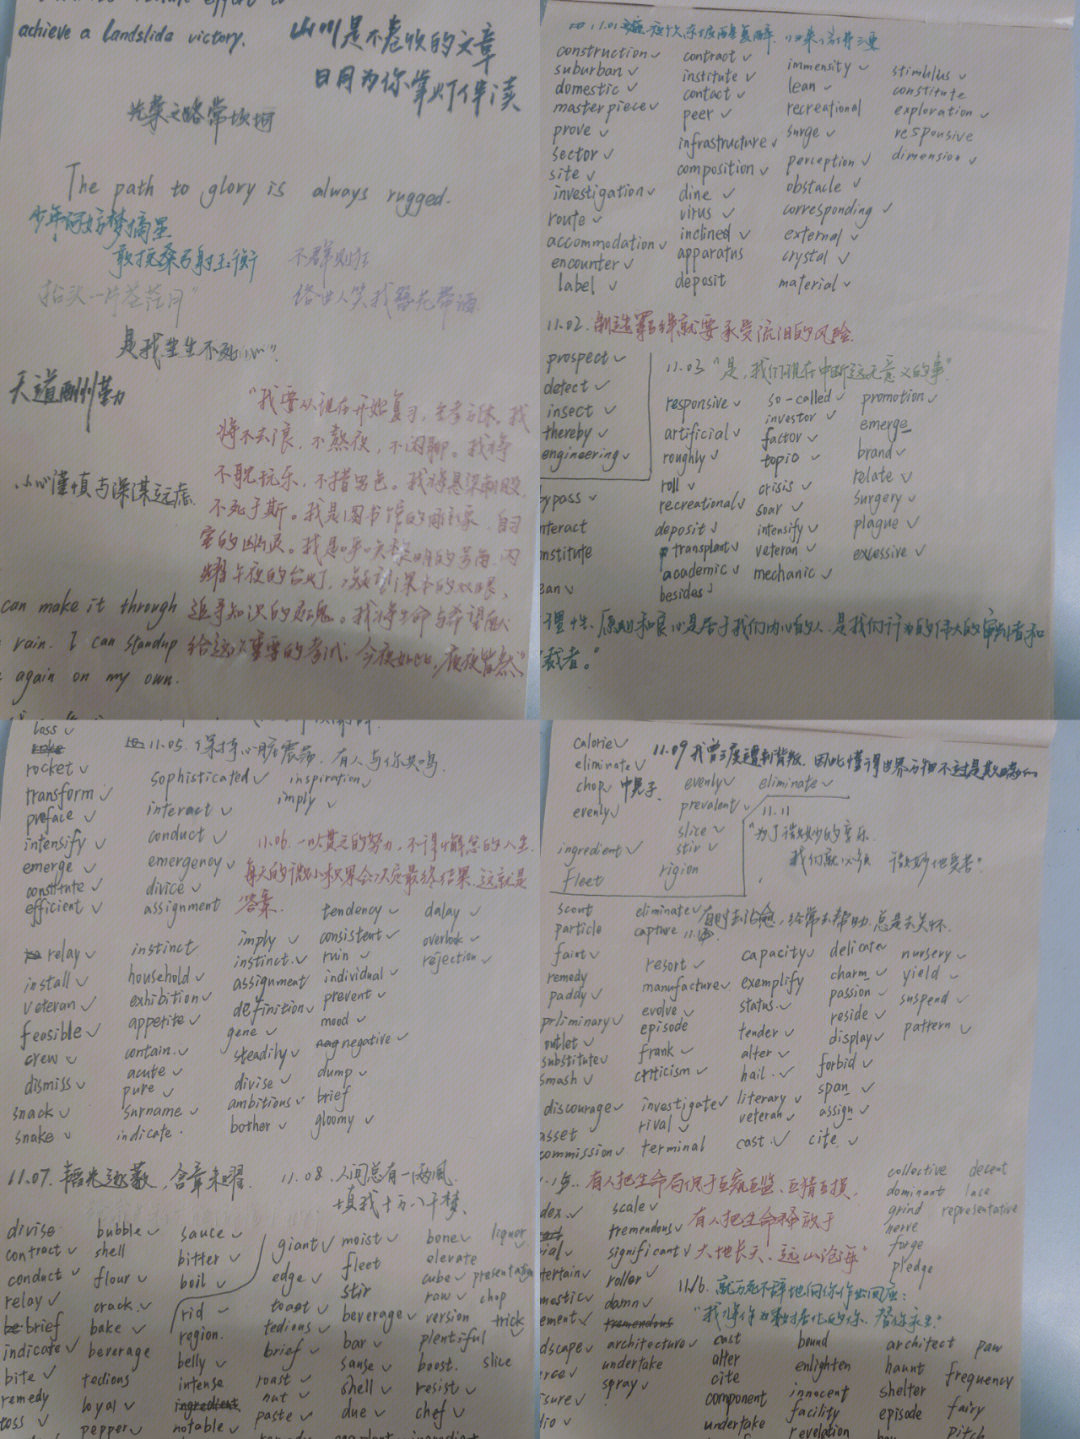 achieve a landslida victory.
山川是不卷收的文章
日月为你掌灯伴读
光荣之路常坎坷
The path to glory is always rugged.
少年何妨梦摘星
敢挽桑弓射玉衡
不群则狂
抬头一片茫茫月"
任世人笑我簪花带酒
天道酬勤
小心谨慎与深谋远虑.
"我要从现在开始复习,
将不去浪, 不熬夜, 不闲聊. 我将
不耽玩乐, 不惜男色。
不死于斯。我是图书馆的雕像, 自习
室的幽灵。
午夜的台灯,
can make it through
追寻知识的灵魂。我将生命与希望献
rain. I can standup
给这次重要的考试, 今夜如此, 夜夜皆然"
again on my own.
construction contract immensity stimulus
suburban institute lean constitute
domestic contact recreational exploration
masterpiece peer surge responsive
prove infrastructure perception dimension
sector composition obstacle
site dine corresponding
investigation virus external
route inclined crystal
accommodation apparatus material
encounter deposit
label
11.02. 制造羁绊就要承受流泪的风险.
prospect
detect
insect
thereby
engineering
11.03 "是, 我们现在中断这无意义的事"
responsive so-called promotion
artificial investor emerge
roughly factor brand
roll topio relate
recreational crisis surgery
deposit soar plague
transplant intensify excessive
academic veteran
besides mechanic
ypass
nteract
nstitute
ean
理性、原则和良心是居于我们内心的人, 是我们行为的伟大的审判者和
裁者。"
loss
rocket
transform
preface
intensify
emerge
constitute
efficient
11.05. 保持心脏震荡, 有人与你共鸣.
sophisticated inspiration
interact imply
conduct
emergency
divice
assignment
11.06. 一以贯之的努力, 不得懈怠的人生
每天的微小积累会决定最终结果, 这就是
答案.
relay
install
veteran
feasible
crew
dismiss
snack
snake
instinct
household
exhibition
appetite
contain
acute
pure
surname
indicate
imply
instinct
assignment
definition
gene
steadily
divise
ambitions
bother
tendency
consistent
ruin
individual
prevent
mood
negative
dump
brief
gloomy
dalay
overlook
rejection
11.07. 韬光逐薮, 含章未曜.
divise bubble sauce
contract shell bitter
conduct flour boil
relay crack rid
brief bake region
indicate beverage belly
bite tedious intense
remedy loyal ingredient
toss pepper notable
11.08. 人间总有一两风,
填我十万八千梦.
giant moist bone liquor
edge fleet elevate
toast stir cube presentation
tedious beverage raw chop
brief bar version trick
roast sause plentiful
nut shell boost slice
paste due resist
chef
calorie
eliminate
chop
evenly
ingredient
fleet
11.09 我曾三度遭到背叛, 因此懂得世界万物不过是
evenly eliminate
prevalent
slice
stir
rigion
11.11
"为了微妙的音乐.
我们就必须 微妙地哀害"
有时去治愈, 经常去帮助, 总是去关怀.
scout
particle
faint
remedy
paddy
prliminary
outlet
substitute
smash
discourage
asset
commission
eliminate
capture
resort
manufacture
evolve
episode
frank
criticism
investigate
rival
terminal
capacity
exemplify
status
tender
alter
hail
literary
veteran
cast
delicate
charm
passion
reside
display
forbid
span
assign
cite
nursery
yield
suspend
pattern
有人把生命局促于互窥互监、互猜互损,
有人把生命释放于
大地长天、远山沧海"
dex
tertain
mestic
ement
dscape
sure
scale
tremendous
significant
roller
damn
tremendous
architecture
undertake
spray
collective decent
dominant lace
grind representative
nerve
forge
pledge
11/16. 就万死不辞地向你作出回应:
cast bound architect paw
alter enlighten haunt frequency
cite innocent shelter fairy
component facility episode pitch
undertake revelation